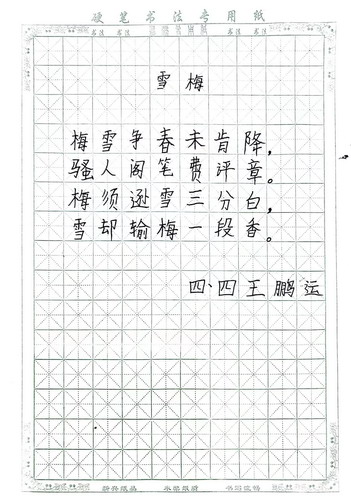 硬笔书法专用纸
雪梅
梅雪争春未肯降，
骚人阁笔费评章。
梅须逊雪三分白，
雪却输梅一段香。
四、四王鹏运